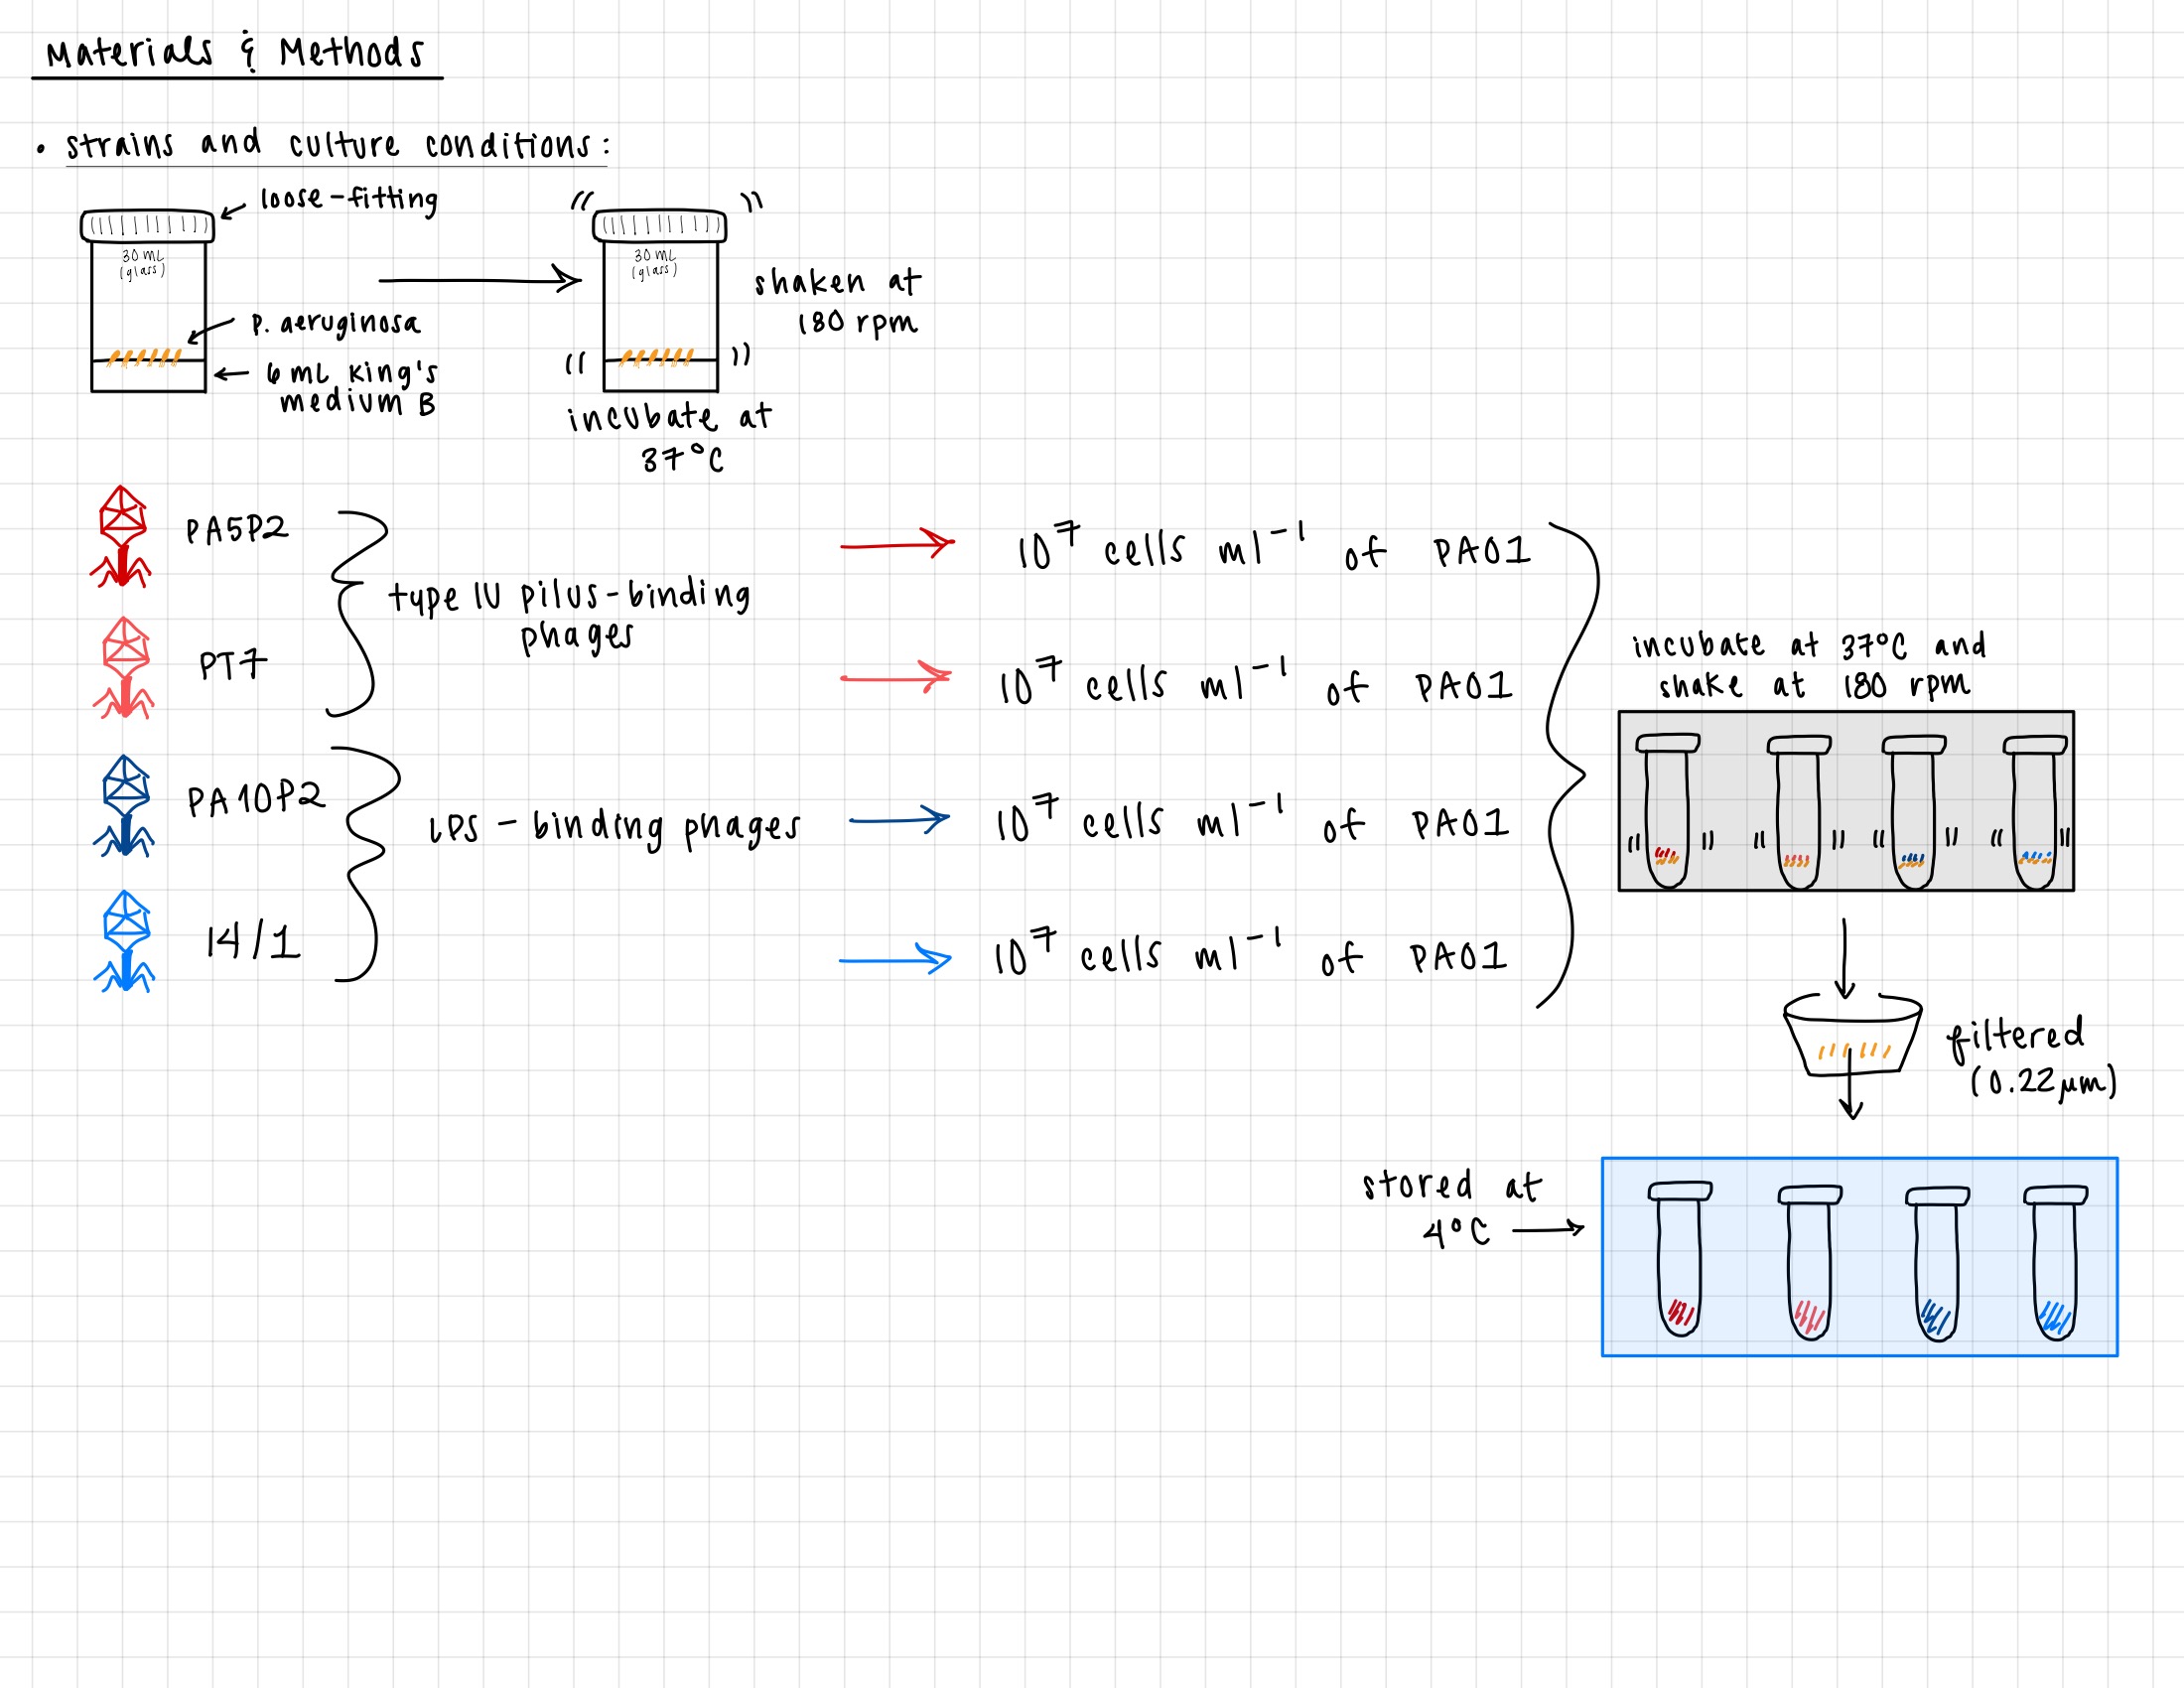 Materials & Methods
• strains and culture conditions:
loose-fitting
30 mL
(glass)
P. aeruginosa
6 mL King's
medium B
30 mL
(glass)
shaken at
180 rpm
incubate at
37°C
PA5P2
PT7
type IV pilus-binding
phages
10⁷ cells ml⁻¹ of PA01
10⁷ cells ml⁻¹ of PA01
PA10P2
14/1
LPS - binding phages
10⁷ cells ml⁻¹ of PA01
10⁷ cells ml⁻¹ of PA01
incubate at 37°C and
shake at 180 rpm
filtered
(0.22 µm)
stored at
4°C